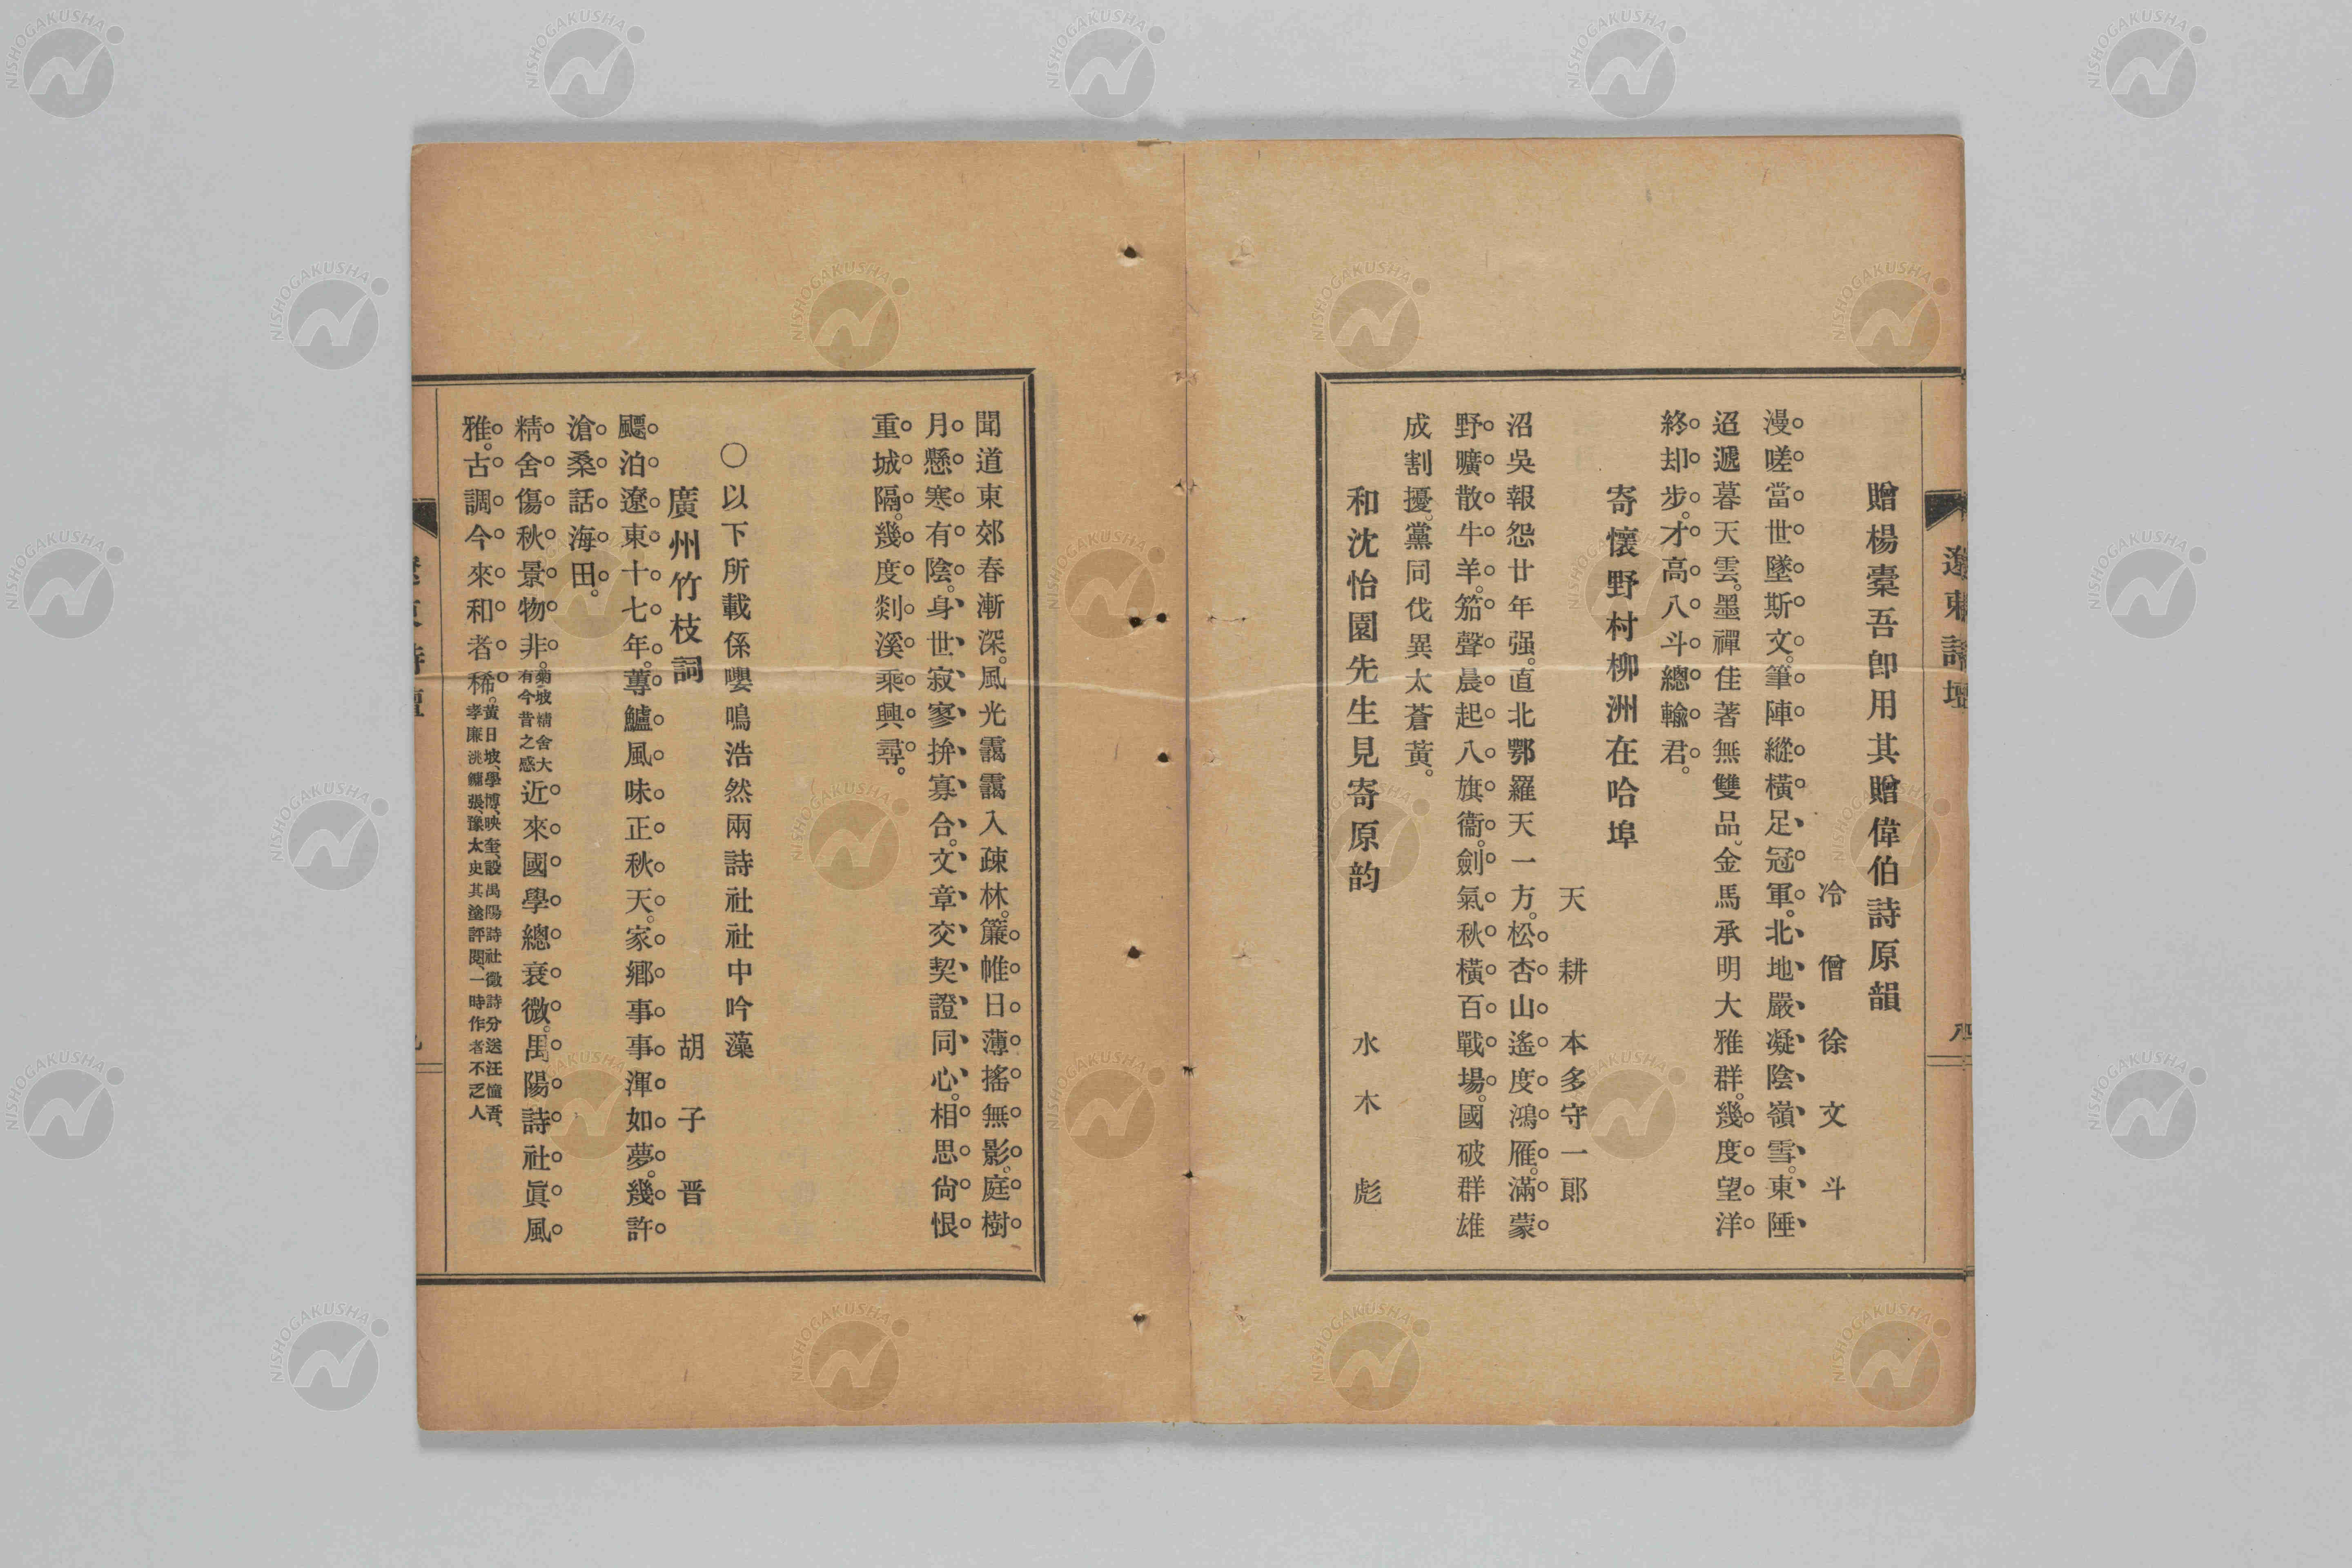 遼東詩壇
贈楊橐吾卽用其贈偉伯詩原韻
冷僧 徐文斗
漫嗟當世墜斯文。筆陣縱橫足冠軍。北地嚴凝陰嶺雪。東陲
迢遞暮天雲。墨禪佳著無雙品。金馬承明大雅群。幾度望洋
終却步。才高八斗總輸君。
寄懷野村柳洲在哈埠
天耕 本多守一郞
沼吳報怨廿年强。直北鄂羅天一方。松杏山遙度鴻雁。滿蒙
野曠散牛羊。笳聲晨起八旗衞。劍氣秋橫百戰場。國破群雄
成割擾。黨同伐異太蒼黃。
和沈怡園先生見寄原韵
水木彪
聞道東郊春漸深。風光靄靄入疎林。簾帷日薄搖無影。庭樹
月懸寒有陰。身世寂寥拚寡合。文章交契證同心。相思尙恨
重城隔。幾度剡溪乘興尋。
○以下所載係嚶鳴浩然兩詩社社中吟藻
廣州竹枝詞
胡子晋
飄泊遼東十七年。蓴鱸風味正秋天。家鄕事事渾如夢。幾許
滄桑話海田。
精舍傷秋景物非。菊坡精舍大有今昔之感近來國學總衰微。禺陽詩社眞風
雅。古調今來和者稀。黃日坡、學博、映奎、設禺陽詩社徵詩分送汪憧吾、孝廉洮鏞張、豫太史其塗評閱、一時作者不乏人